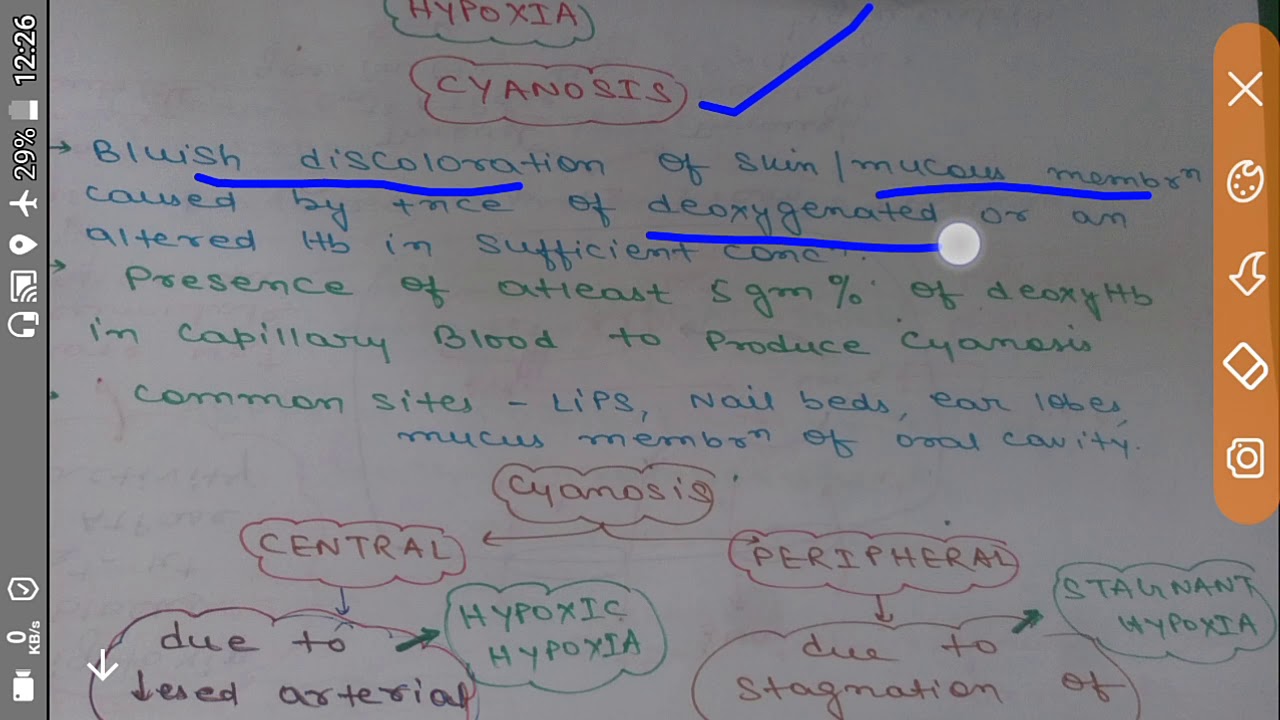 HYPOXIA
CYANOSIS
→ Bluish discoloration of skin / mucous membrn
caused by ↑nce of deoxygenated or an
altered Hb in sufficient concn.
→ Presence of atleast 5 gm % of deoxyHb
in capillary Blood to Produce Cyanosis
common sites - LiPS, Nail beds, ear lobes,
mucus membrn of oral cavity.
Cyanosis
CENTRAL
PERIPHERAL
due to
↓esed arterial
HYPOXIC
HYPOXIA
due to
stagnation of
STAGNANT
HYPOXIA
12:26
29%
0
KB/s